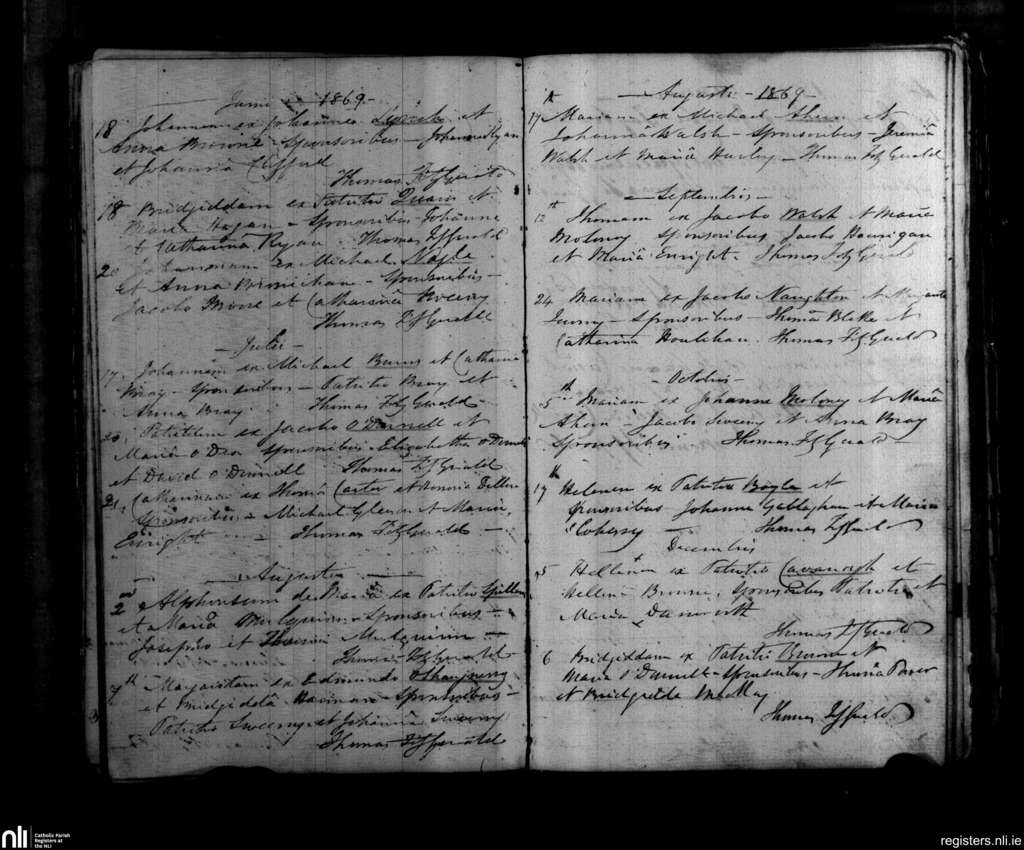 Junii 1869-
18 Johannem ex Johannea Lynch et
Anna Browne - Sponsoribus - Johanne Ryan
et Johanna Clifford
Thomas FitzGerald
18 Bridgiddam ex Patritio Quain et
Maria Hogan - Sponsoribus - Johanne
et Catharina Ryan Thomas FitzGerald
20 Johannem ex Michael
et Anna - Sponsoribus -
Jacobo et Catharina
Thomas FitzGerald
- Julii -
17 Johannem ex Michael Burns et Catharina
Bray - Sponsoribus - Patritio Bray et
Anna Bray Thomas FitzGerald
20 ex Jacobo O'Donnell et
Maria O'Dea Sponsoribus Elizabetha O'Donnell
et David O'Donnell Thomas FitzGerald
21 Catharinam ex Thoma Carter et Honoria
Sponsoribus - Michael Gleeson et Maria
Enright - Thomas FitzGerald -
- Augusti -
2nd Alphonsum de Maria ex Patritio Spillane
et Maria Mulqueen - Sponsoribus -
Josepho et -
Thomas FitzGerald
7th Margaritam ex Edmundo
et Bridgidda - Sponsoribus -
Patritio Sweeny et Johanna Sweeny
Thomas FitzGerald
- Augusti - 1869 -
17th Mariam ex Michael Ahern et
Johanna Walsh - Sponsoribus - Jeremia
Walsh et Maria Hurley - Thomas FitzGerald
- Septembris -
12th Thomam ex Jacobo Walsh et Maria
Moloney Sponsoribus Jacobo Hannigan
et Maria Enright. Thomas FitzGerald
24 Mariam ex Jacobo Naughton et
- Sponsoribus - Thoma Blake et
Catharina Houlihan. Thomas FitzGerald
- Octobris -
5th Mariam ex Johanne Moloney et Maria
Ahern - Jacobo Sweeny et Anna Bray
Sponsoribus Thomas FitzGerald
17th Helenam ex Patritio Boyle et
Sponsoribus Johanna Gallaghan et Maria
Thomas FitzGerald
Decembris
5 Hellenam ex Patritio Cavanagh et
Hellena Browne, Sponsoribus Patritio et
Maria Danworth
Thomas FitzGerald
6 Bridgiddam ex Patritio Browne et
Maria O'Donnell - Sponsoribus - Thoma Power
et Bridgidda MacKey
Thomas FitzGerald
nli Catholic Parish
Registers at
the NLI
registers.nli.ie